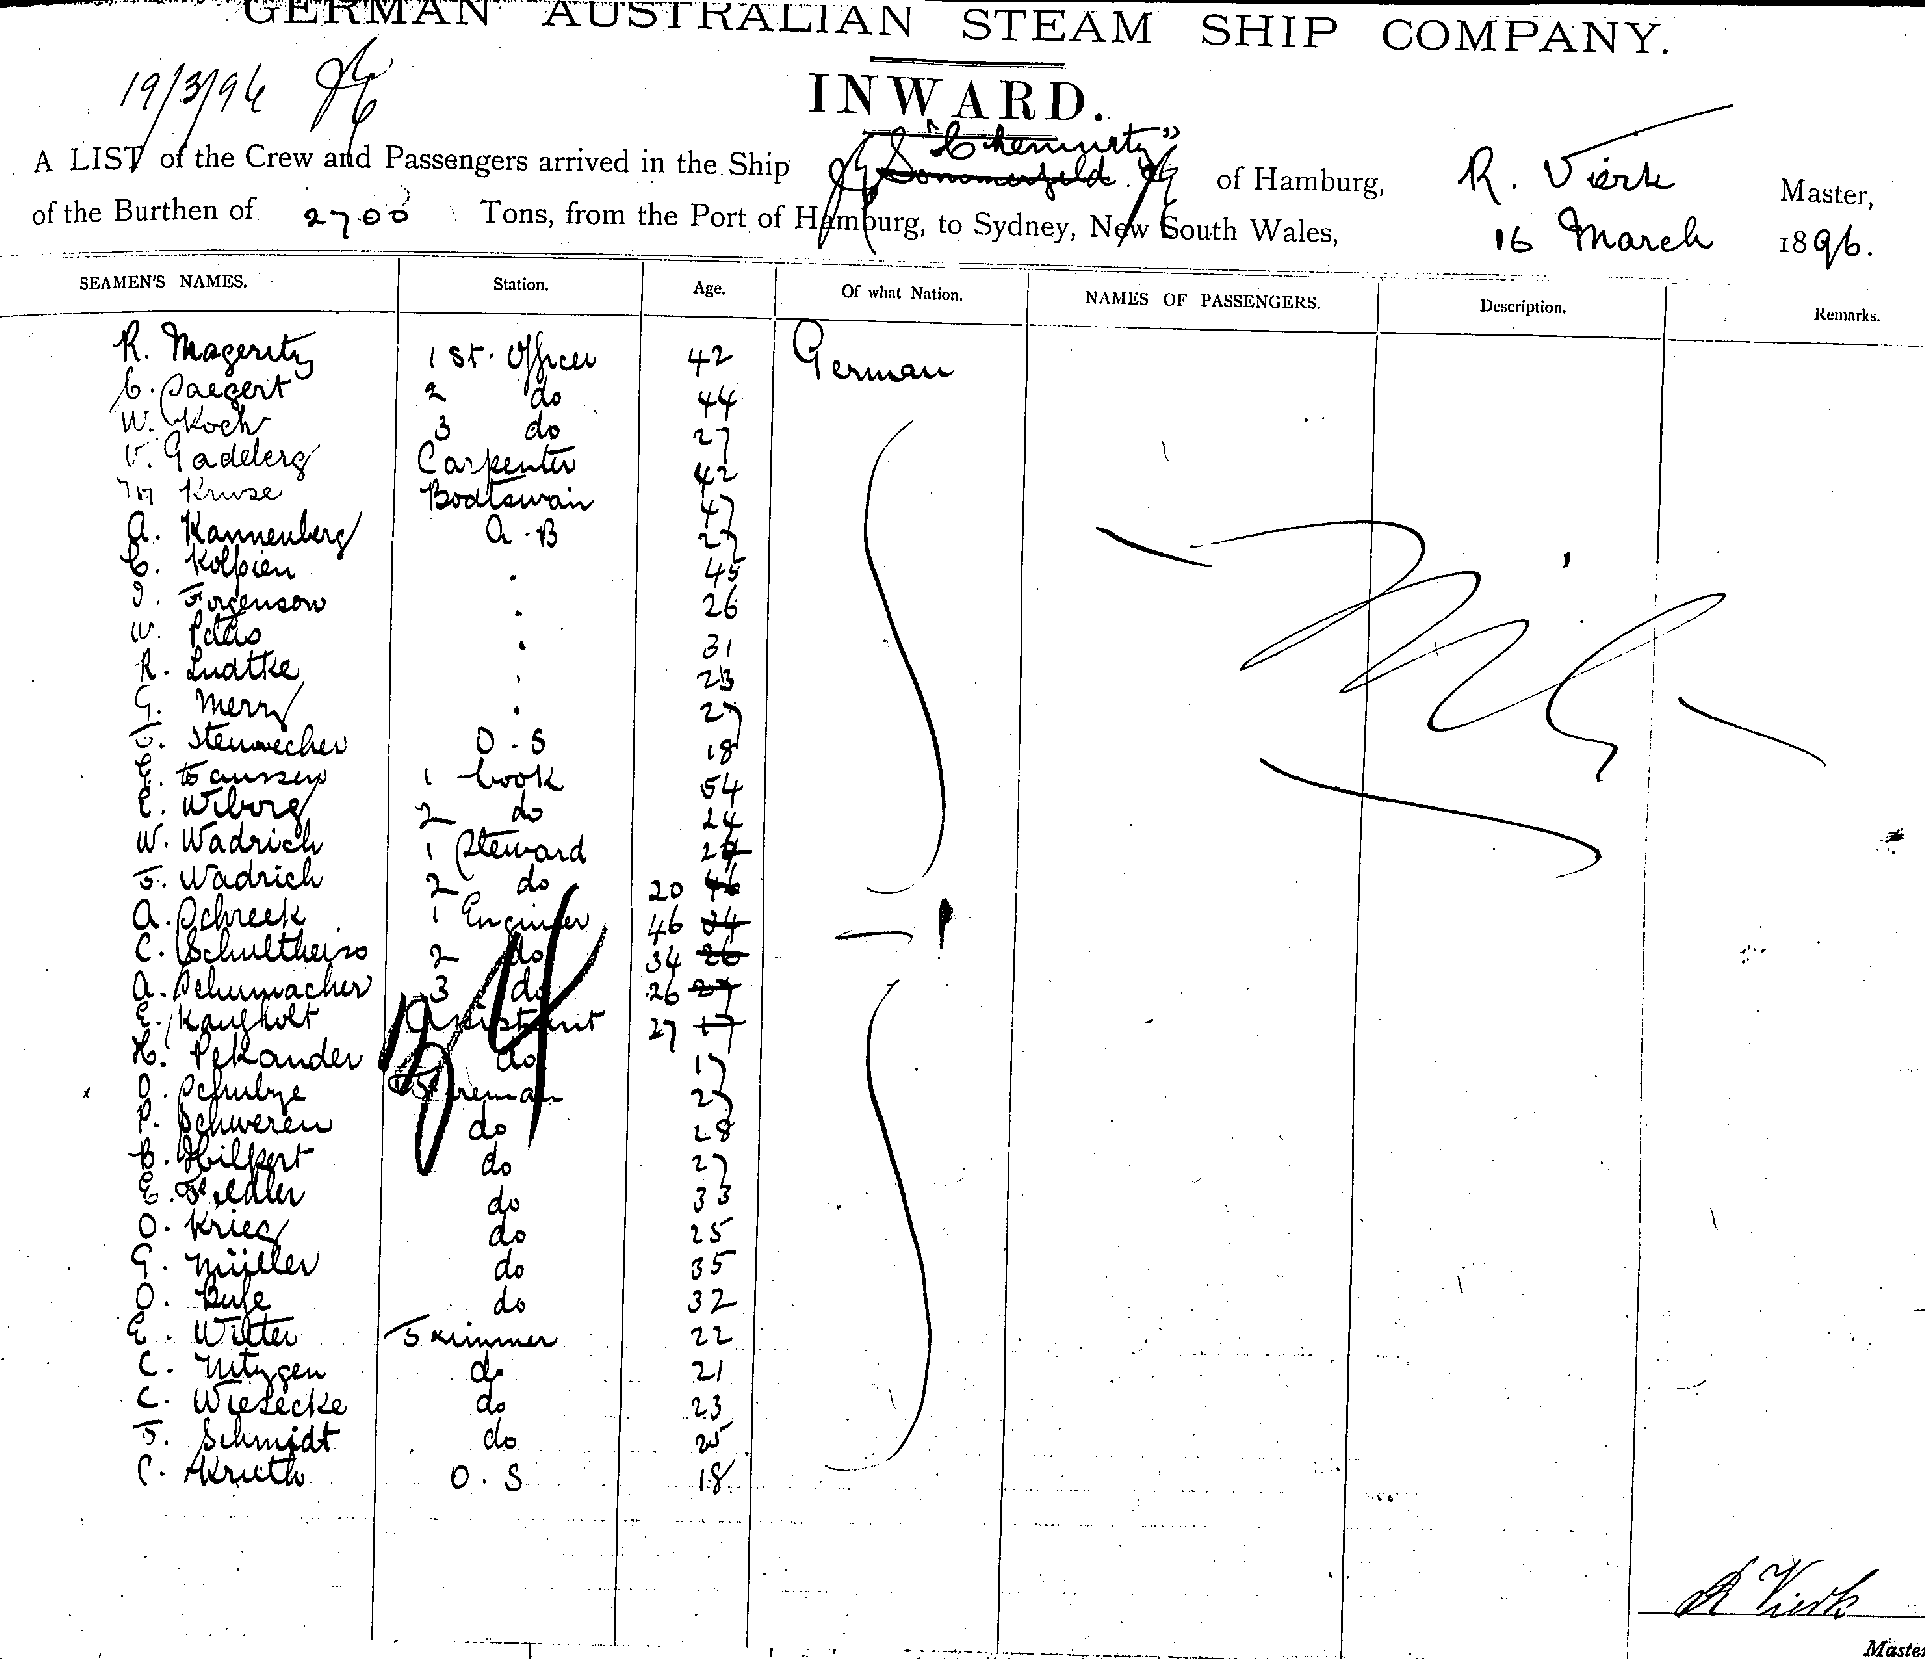 GERMAN AUSTRALIAN STEAM SHIP COMPANY.
19/3/96
INWARD.
"Chemnitz"
A LIST of the Crew and Passengers arrived in the Ship Sommerfeld of Hamburg, R. Vierk Master,
of the Burthen of 2700 Tons, from the Port of Hamburg, to Sydney, New South Wales, 16 March 1896.
SEAMEN'S NAMES. Station. Age. Of what Nation. NAMES OF PASSENGERS. Description. Remarks.
R. Mageritz 1 St. Officer 42 German
C. Paegert 2 do 44
W. Koch 3 do 27
V. Gadeberg Carpenter 42
M Kruse Boatswain 47
A. Kannenberg A.B 27
C. Kolpien 45
J. Jorgenson 26
W. Peters 31
R. Ludtke 23
G. Merry 27
J. Stenwecher O.S 18
Janssen 1 Cook 54
C. Wiborg 2 do 24
W. Wadrich 1 Steward 24
F. Wadrich 2 do 20 46
A. Schreek 1 Engineer 46 34
C. Schultheiss 2 do 34 26
A. Schumacher 3 do 26 27
E. Kaugholt Assistant 27 17
H. Pekander do 17
O. Schulze Fireman 27
P. Schweren do 28
B. Hilpert do 27
E. Fiedler do 33
O. Krieg do 25
G. Müller do 35
O. Buse do 32
E. Witter Trimmer 22
C. Nitzgen do 21
C. Wiesecke do 23
F. Schmidt do 25
C. Kruth O.S 18
Nil
R Vierk
Master